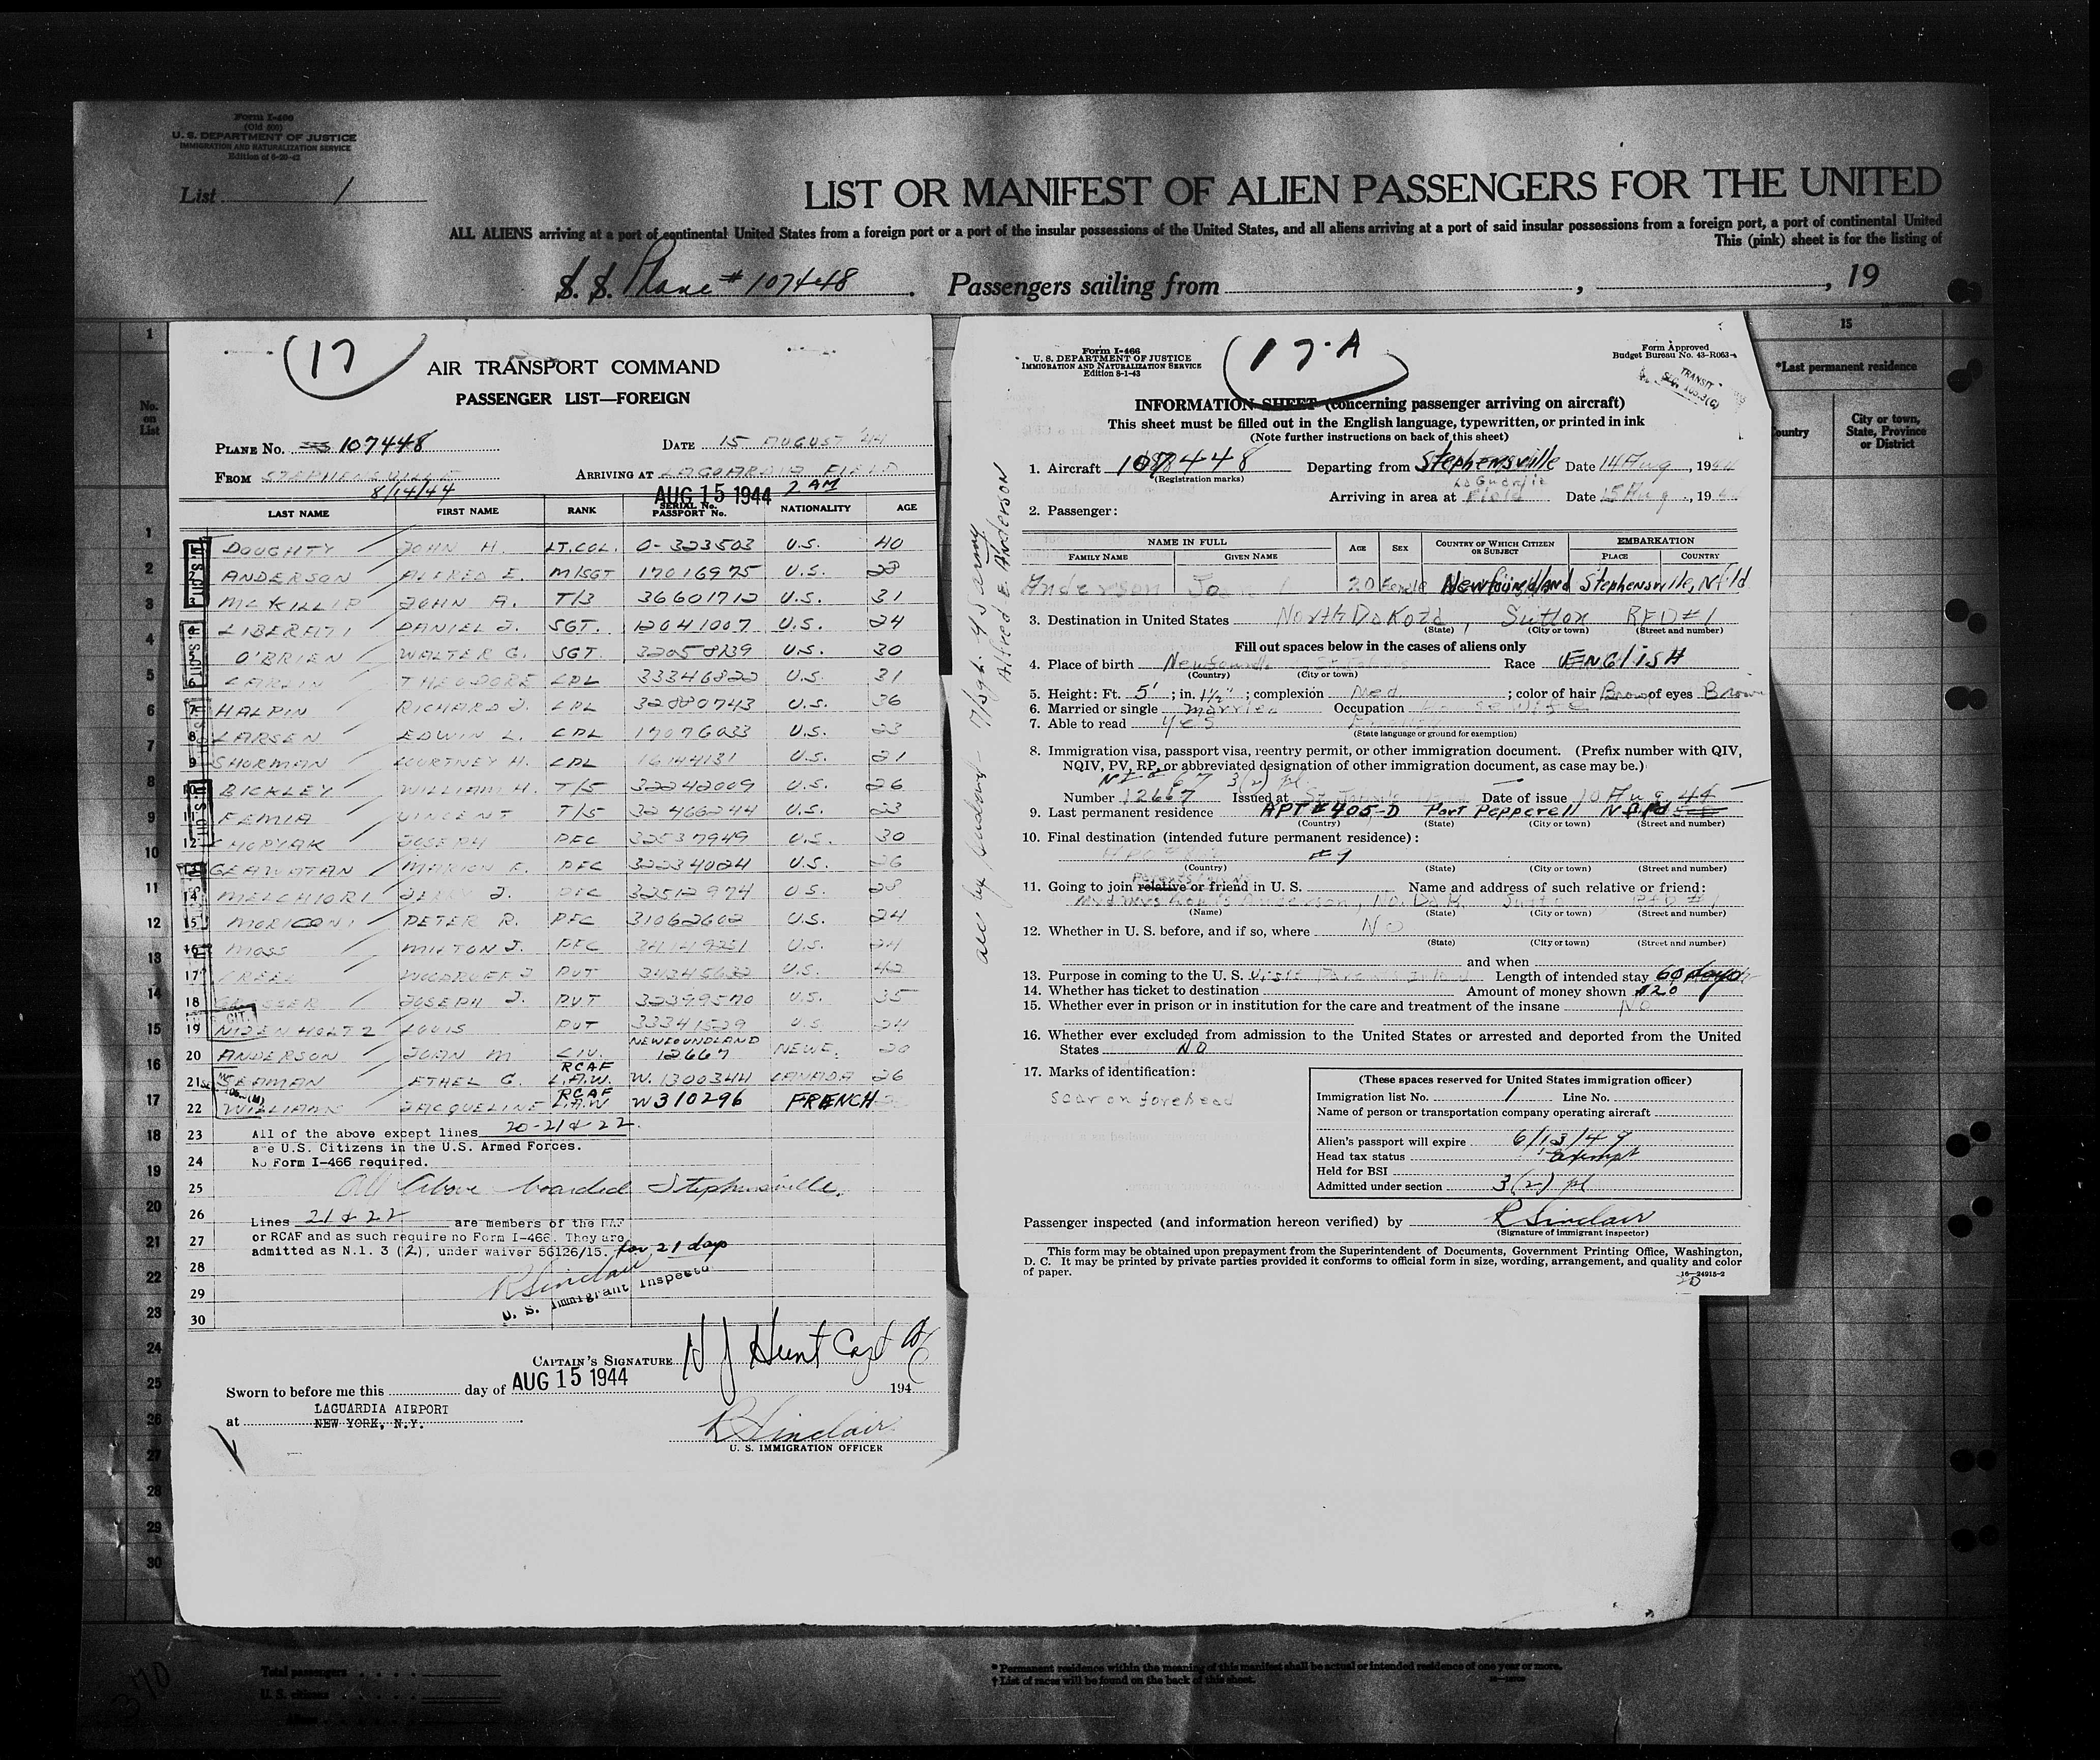 Form I-400
(Old 500)
U. S. DEPARTMENT OF JUSTICE
IMMIGRATION AND NATURALIZATION SERVICE
List 1
LIST OR MANIFEST OF ALIEN PASSENGERS FOR THE UNITED
ALL ALIENS arriving at a port of continental United States from a foreign port or a port of the insular possessions of the United States, and all aliens arriving at a port of said insular possessions from a foreign port, a port of continental United
This (pink) sheet is for the listing of
S. S. Plane # 107448 . Passengers sailing from , , 19
15
*Last permanent residence
No. on List
Country
City or town, State, Province or District
(17)
AIR TRANSPORT COMMAND
PASSENGER LIST—FOREIGN
PLANE No. 107448 DATE 15 AUGUST '44
FROM STEPHENSVILLE ARRIVING AT LAGUARDIA FIELD
8/14/44 AUG 15 1944 2 AM
LAST NAME FIRST NAME RANK SERIAL No. PASSPORT No. NATIONALITY AGE
1 DOUGHTY JOHN H. LT.COL. O-323503 U.S. 40
2 ANDERSON ALFRED E. M/SGT 17016975 U.S. 28
3 MCKILLIP JOHN A. T/3 36601712 U.S. 31
4 LIBERATI DANIEL J. SGT. 12041007 U.S. 24
5 O'BRIEN WALTER G. SGT. 32058139 U.S. 30
6 THEODORE CPL 33346822 U.S. 31
7 HALPIN RICHARD J. CPL 32880743 U.S. 36
8 LARSEN EDWIN L. CPL 17076033 U.S. 23
9 SHURMAN COURTNEY H. CPL 16144131 U.S. 21
10 BICKLEY WILLIAM H. T/5 32242009 U.S. 26
11 FEMIA VINCENT T/5 32466244 U.S. 23
12 CHOPYAK JOSEPH PFC 32537949 U.S. 30
13 MARION F. PFC 32234024 U.S. 26
14 MELCHIORI J. PFC 32512974 U.S. 28
15 MORICONI PETER R. PFC 31062602 U.S. 24
16 MOSS MILTON J. PFC 34149251 U.S. 24
17 CREEL WOODRUFF J PVT 34345632 U.S. 42
18 JOSEPH J. PVT 32399570 U.S. 35
19 NIDENHOLTZ LOUIS PVT 33341529 U.S. 24
20 ANDERSON JOAN M CIV. NEWFOUNDLAND 12667 NEWF. 20
21 SEAMAN ETHEL G. RCAF L.A.W. W.1300344 CANADA 26
22 WILLIAMS JACQUELINE RCAF L.A.W W310296 FRENCH
23 All of the above except lines 20-21 & 22.
are U.S. Citizens in the U.S. Armed Forces.
24 No Form I-466 required.
25 All Above boarded Stephensville.
26 Lines 21 & 22 are members of the RAF
27 or RCAF and as such require no Form I-466. They are
admitted as N.I. 3 (2), under waiver 56126/15. for 21 days
28 R Sinclair
29 U. S. Immigrant Inspector
30
CAPTAIN'S SIGNATURE N J Hunt Capt AC
Sworn to before me this day of AUG 15 1944 194
LAGUARDIA AIRPORT
at NEW YORK, N.Y.
R Sinclair
U. S. IMMIGRATION OFFICER
Form I-466
U. S. DEPARTMENT OF JUSTICE
IMMIGRATION AND NATURALIZATION SERVICE
Edition 8-1-43
17-A
Form Approved
Budget Bureau No. 43-R063-4
TRANSIT
SEC. 105.3(C)
INFORMATION SHEET (concerning passenger arriving on aircraft)
This sheet must be filled out in the English language, typewritten, or printed in ink
(Note further instructions on back of this sheet)
1. Aircraft 107448 Departing from Stephensville Date 14 Aug , 1944
(Registration marks)
Arriving in area at La Guardia Field Date 15 Aug , 19
2. Passenger:
NAME IN FULL AGE SEX COUNTRY OF WHICH CITIZEN OR SUBJECT EMBARKATION
FAMILY NAME GIVEN NAME PLACE COUNTRY
Anderson 20 Female Newfoundland Stephensville, Nfld
3. Destination in United States North Dakota, Sutton RFD #1
(State) (City or town) (Street and number)
Fill out spaces below in the cases of aliens only
4. Place of birth Race ENGLISH
(Country) (City or town)
5. Height: Ft. 5' ; in. 1½" ; complexion Med. ; color of hair Brown of eyes Brown
6. Married or single Married Occupation Housewife
7. Able to read yes English
(State language or ground for exemption)
8. Immigration visa, passport visa, reentry permit, or other immigration document. (Prefix number with QIV,
NQIV, PV, RP, or abbreviated designation of other immigration document, as case may be.)
67 3(2) pl
Number 12667 Issued at Date of issue 10 Aug 44
9. Last permanent residence APT #405-D Fort Pepperell Nfld
(Country) (State) (City or town) (Street and number)
10. Final destination (intended future permanent residence):
(Country) (State) (City or town) (Street and number)
11. Going to join relative or friend in U. S. Name and address of such relative or friend:
Anderson, No. Dak RFD #1
(Name) (State) (City or town) (Street and number)
12. Whether in U. S. before, and if so, where NO
(State) (City or town) (Street and number)
and when
13. Purpose in coming to the U. S. Visit Length of intended stay 60 days
14. Whether has ticket to destination Amount of money shown $20
15. Whether ever in prison or in institution for the care and treatment of the insane No
16. Whether ever excluded from admission to the United States or arrested and deported from the United
States NO
17. Marks of identification:
Scar on forehead
(These spaces reserved for United States immigration officer)
Immigration list No. 1 Line No.
Name of person or transportation company operating aircraft
Alien's passport will expire 6/13/49
Head tax status Exempt
Held for BSI
Admitted under section 3(2) pl
Passenger inspected (and information hereon verified) by R Sinclair
(Signature of immigrant inspector)
This form may be obtained upon prepayment from the Superintendent of Documents, Government Printing Office, Washington,
D. C. It may be printed by private parties provided it conforms to official form in size, wording, arrangement, and quality and color
of paper.
16—24915-2
Acc by husband - M/Sgt. US Army
Alfred E. Anderson
Total passengers
U. S. citizens
Aliens
370
* Permanent residence within the meaning of this manifest shall be actual or intended residence of one year or more.
† List of races will be found on the back of this sheet.